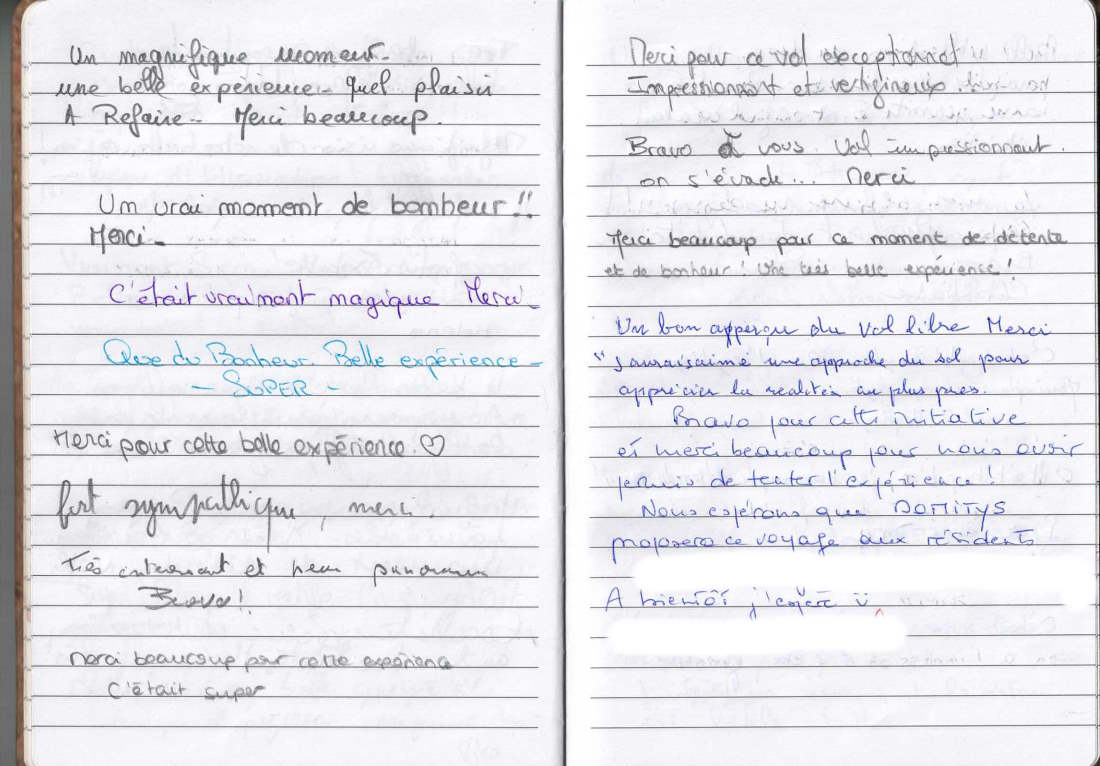 Un magnifique moment.
une belle expérience. quel plaisir
A Refaire - Merci beaucoup.
Un vrai moment de bonheur !!
Merci -
C'était vraiment magique Merci -
Que du Bonheur Belle expérience -
- SUPER -
Merci pour cette belle expérience. ♡
fort sympathique, merci.
Très intéressant et beau panorama
Bravo !!
Merci beaucoup par cette expérience
C'était super
Merci pour ce vol exceptionnel
Impressionnant et vertigineux.
Bravo à vous. Vol impressionnant.
on s'évade... Merci
Merci beaucoup pour ce moment de détente
et de bonheur ! Une très belle expérience !
Un bon apperçu du vol libre Merci
j'auraisaimé une approche du sol pour
apprécier la realités au plus pres.
Bravo pour cette initiative
et merci beaucoup pour nous avoir
permis de tenter l'expérience !
Nous espérons que DOMITYS
proposera ce voyage aux résidents
A bientôt j'espère